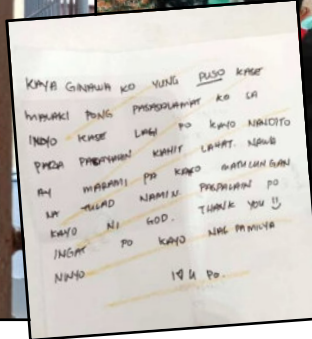 KAYA GINAWA KO YUNG PUSO KASE
MALAKI PONG PASASALAMAT KO SA
INYO KASE LAGI PO KAYO NANDITO
PARA PAGAYUHAN KAHIT LAHAT. NAWA
AY MARAMI PA KAYO MATULUNGAN
NA TULAD NAMIN PAGPALAIN PO
KAYO NI GOD. THANK YOU
INGAT PO KAYO NAG PAMILYA
NINYO
I ♡ U PO.